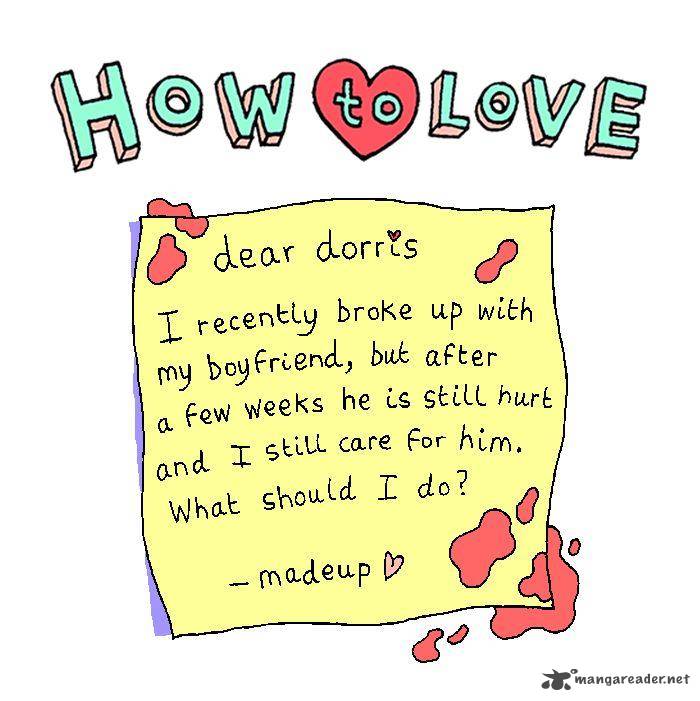 HOW to LOVE
dear dorris
I recently broke up with
my boyfriend, but after
a few weeks he is still hurt
and I still care for him.
What should I do?
— madeup
mangareader.net